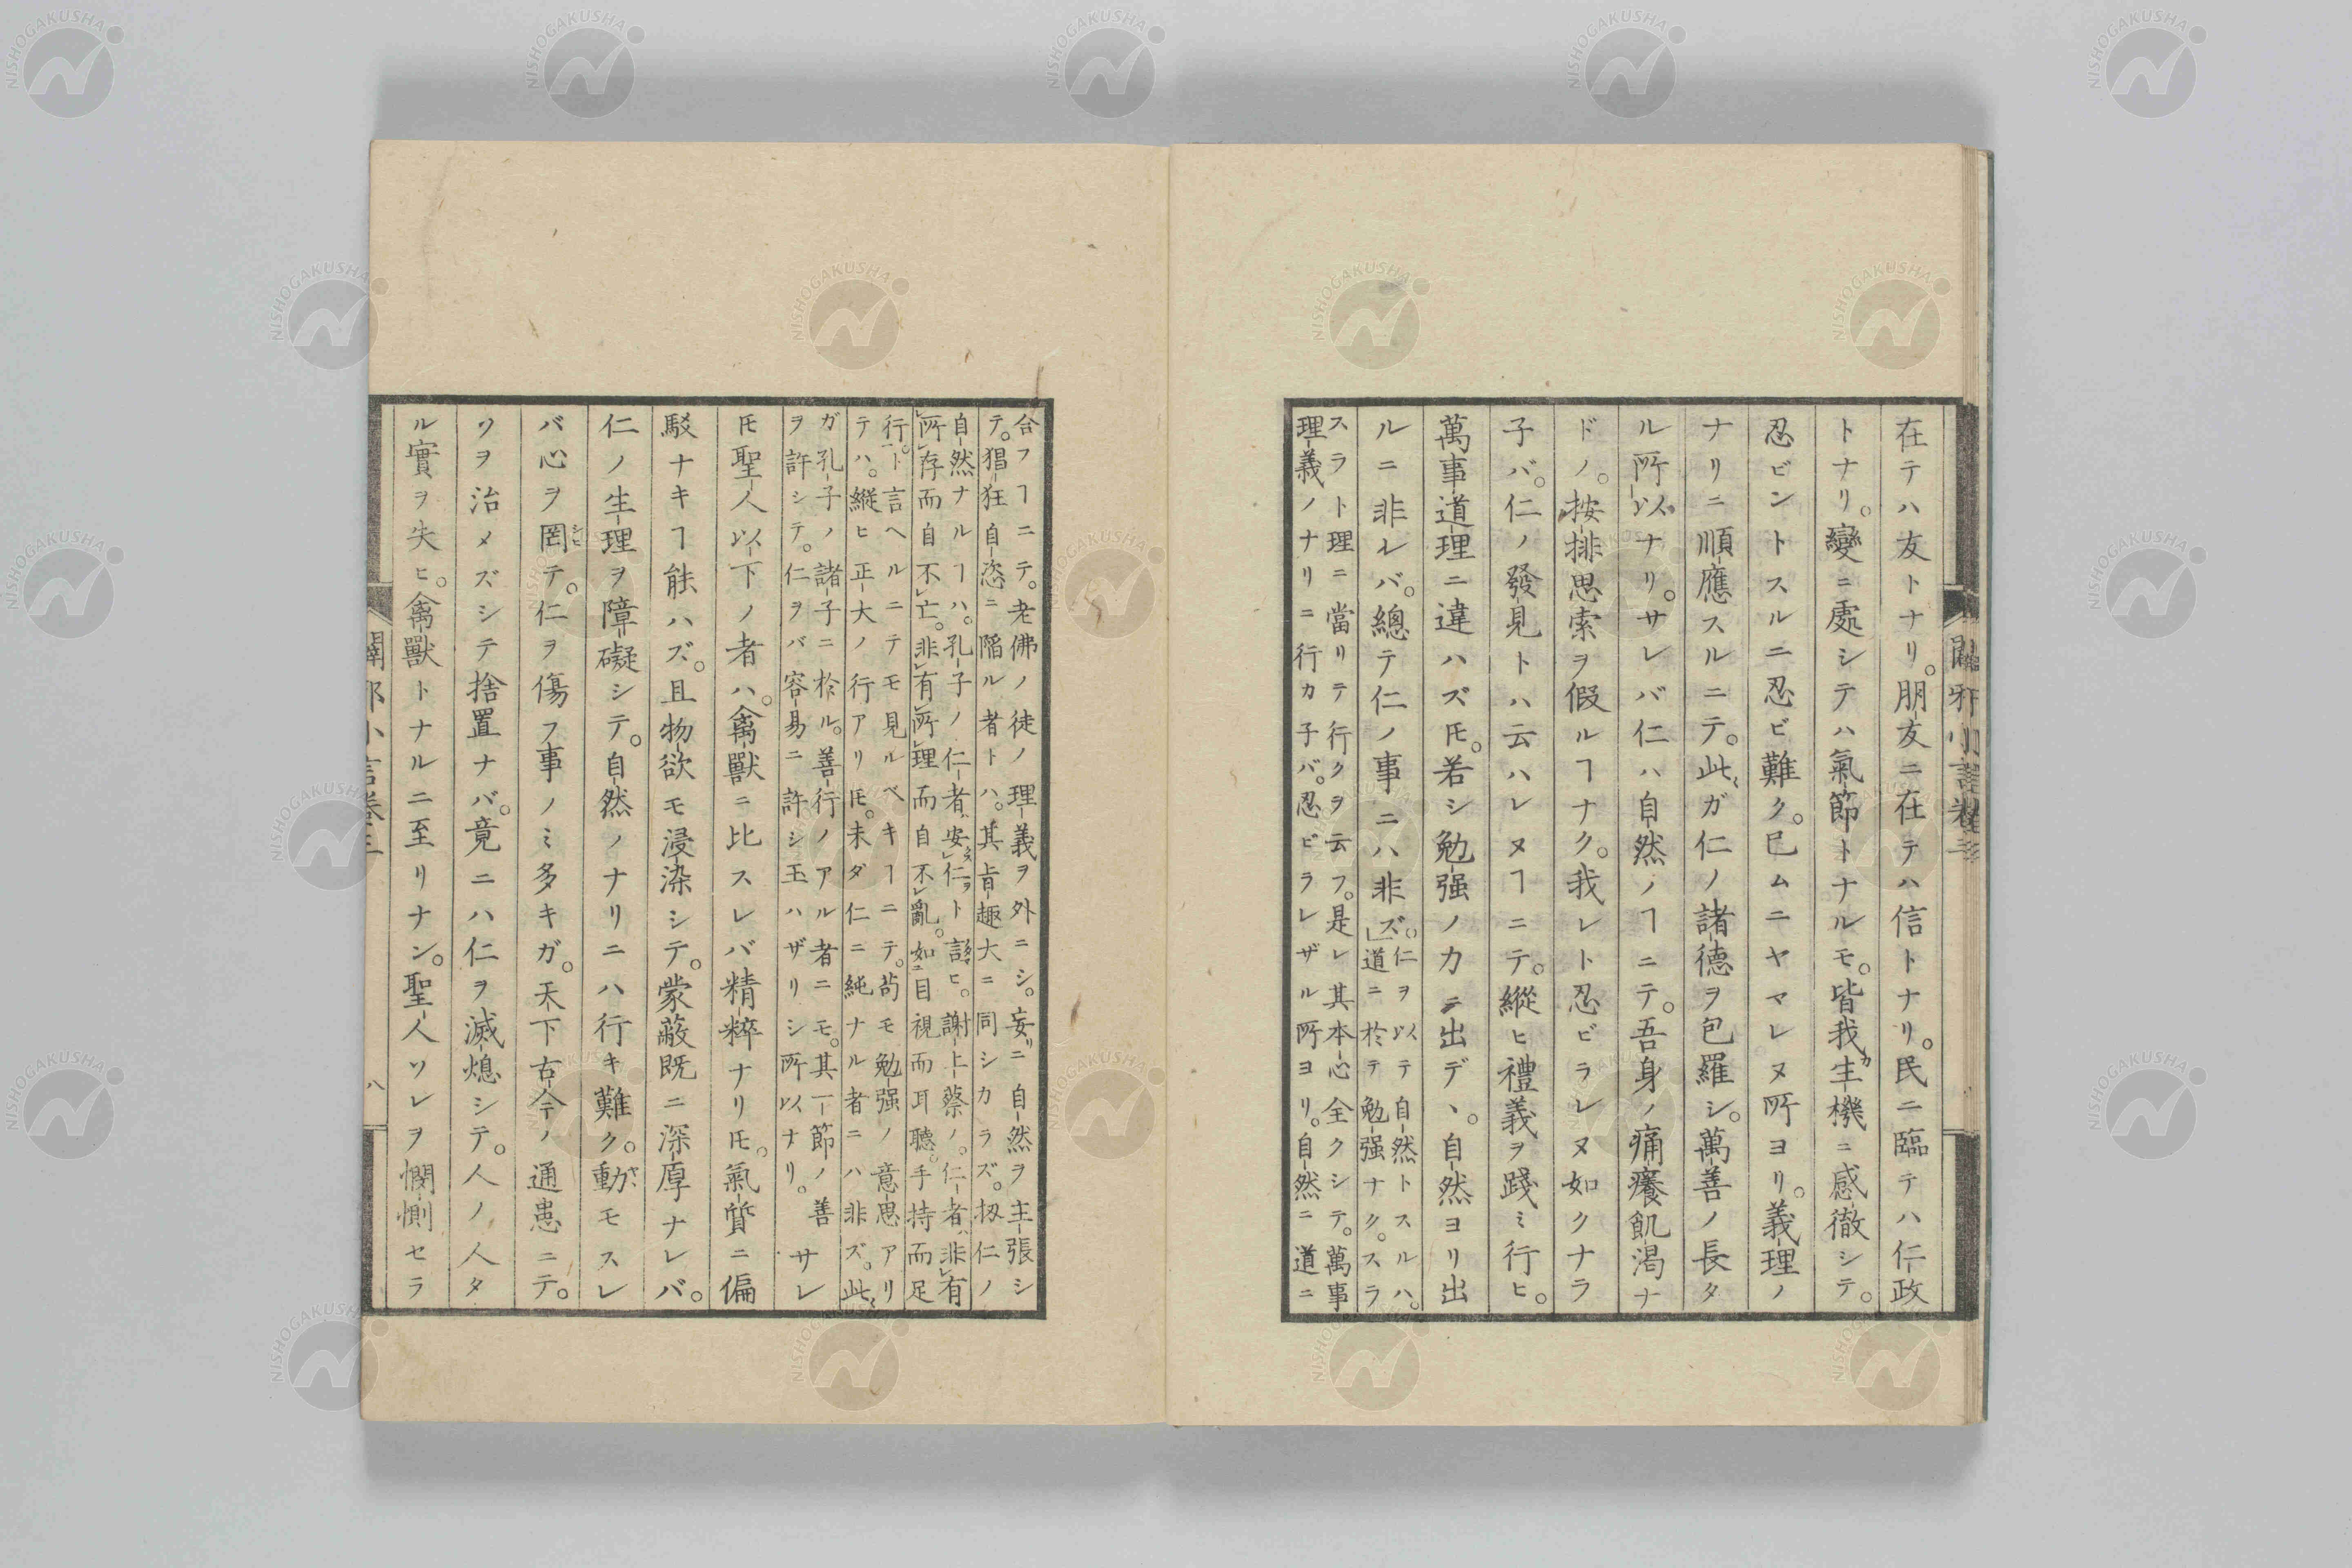 在テハ友トナリ。朋友ニ在テハ信トナリ。民ニ臨テハ仁政
トナリ。變ニ處シテハ氣節トナルモ。皆我ガ生機ニ感徹シテ。
忍ビントスルニ忍ビ難ク。已ムニヤマレヌ所ヨリ。義理ノ
ナリニ順應スルニテ。此ガ仁ノ諸德ヲ包羅シ。萬善ノ長タ
ル所以ナリ。サレバ仁ハ自然ノヿニテ。吾身ノ痛癢飢渇ナ
ドノ。按排思索ヲ假ルヿナク。我レト忍ビラレヌ如クナラ
子バ。仁ノ發見トハ云ハレヌヿニテ。縱ヒ禮義ヲ踐ミ行ヒ。
萬事道理ニ違ハズ𪜈。若シ勉强ノ力ニ出デヽ。自然ヨリ出
ルニ非レバ。總テ仁ノ事ニハ非ズ。
仁ヲ以テ自然トスルハ。
道ニ於テ勉强ナク。スラ
スラト理ニ當リテ行クヲ云フ。是レ其本心全クシテ。萬事
理義ノナリニ行カ子バ。忍ビラレザル所ヨリ。自然ニ道ニ
闢邪小言卷三
合フヿニテ。老佛ノ徒ノ理義ヲ外ニシ。妄リニ自然ヲ主張シ
テ。猖狂自恣ニ陷ル者トハ。其旨趣大ニ同シカラズ。扨仁ノ
自然ナルヿハ。孔子ノ仁者ハ安ズ仁ヲト説ヒ。謝上蔡ノ。仁者ハ非有
所存而自不亡。非有所理而自不亂。如目視而耳聽。手持而足
行ト言ヘルニテモ見ルベキヿニテ。苟モ勉强ノ意思アリ
テハ。縱ヒ正大ノ行アリ𪜈。未ダ仁ニ純ナル者ニハ非ズ。此
ガ孔子ノ諸子ニ於ル。善行ノアル者ニモ。其一節ノ善
ヲ許シテ。仁ヲバ容易ニ許シ玉ハザリシ所以ナリ。
サレ
𪜈聖人以下ノ者ハ。禽獸ニ比スレバ精粹ナリ𪜈。氣質ニ偏
駁ナキヿ能ハズ。且物欲モ浸染シテ。蒙蔽既ニ深厚ナレバ。
仁ノ生理ヲ障礙シテ。自然ノナリニハ行キ難ク。動モスレ
バ心ヲ罔シヒテ。仁ヲ傷フ事ノミ多キガ。天下古今ノ通患ニテ。
ソヲ治メズシテ捨置ナバ。竟ニハ仁ヲ滅熄シテ。人ノ人タ
ル實ヲ失ヒ。禽獸トナルニ至リナン。聖人ソレヲ憫惻セラ
闢邪小言卷三
八
NISHOGAKUSHA